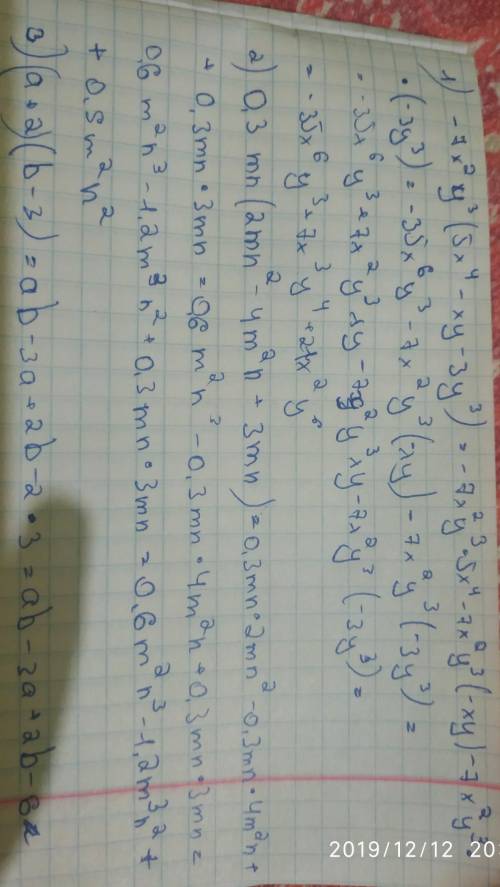 1) -7x²y³(5x⁴ - xy - 3y³) = -7x²y³·5x⁴ - 7x²y³(-xy) - 7x²y³·
·(-3y³) = -35x⁶y³ - 7x²y³(-xy) - 7x²y³(-3y³) =
= -35x⁶y³ + 7x²y³xy - 7x²y³xy - 7x²y³(-3y³) =
= -35x⁶y³ + 7x³y⁴ + 21x²y⁶
2) 0,3 mn(2mn² - 4m²n + 3mn) = 0,3mn·2mn² - 0,3mn·4m²n +
+ 0,3mn·3mn = 0,6m²n³ - 0,3mn·4m²n + 0,3mn·3mn =
0,6m²n³ - 1,2m³n² + 0,3mn·3mn = 0,6m²n³ - 1,2m³n² +
+ 0,5m²n²
3) (a+2)(b-3) = ab - 3a + 2b - 2·3 = ab - 3a + 2b - 6
2019/12/12 20